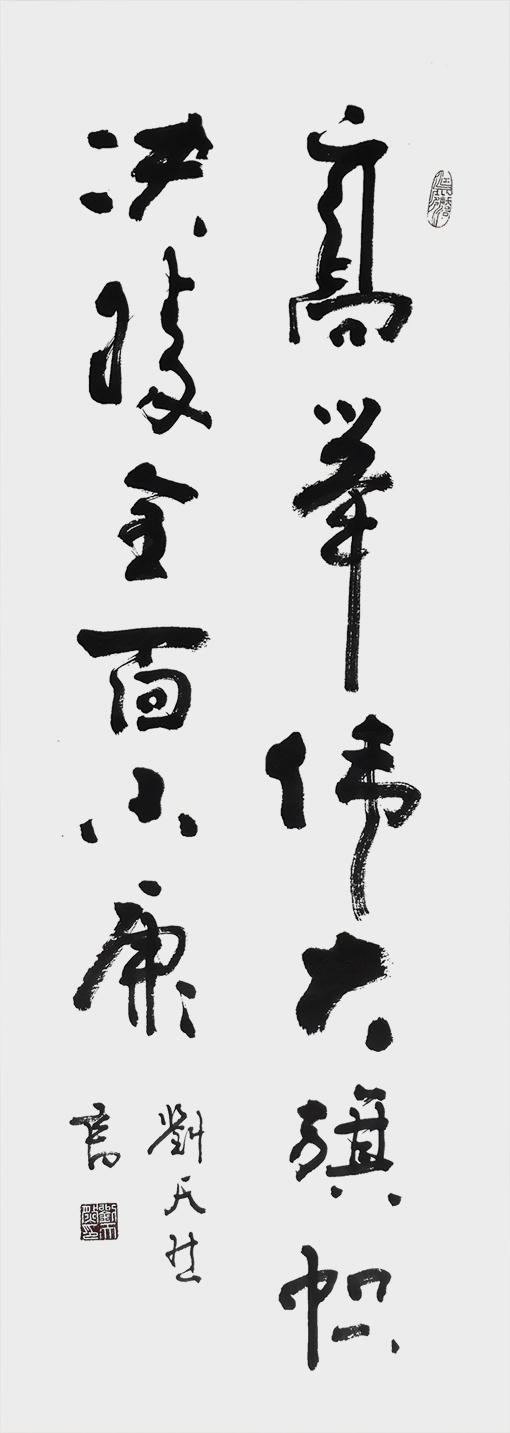 高举伟大旗帜
决勝全面小康
劉天
書